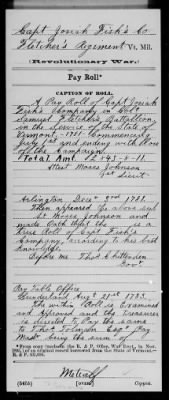 Capt Josiah Fisk's Co
Fletcher's Regiment Vt. Mil.
(Revolutionary War.)
Pay Roll*
CAPTION OF ROLL.
A Pay Roll of Capt Josiah
Fisk's Company in Col
Samuel Fletcher's Battallion,
in the Service of the State of
Vermont, 1781 Commencing
July 1st and ending with Rove
of the Campaign.
Total Amt £2345-5-11.
Attest Moses Johnson
Lieut
Arlington Decr 3rd 1781.
Then appeared the above said
Lt Moses Johnson and
made Oath that the is a
true Roll of Capt Fisk's
Company, according to his best
knowledge.
Before me Thos Chittenden
Govr
Pay Table Office
Sunderland Augt 21st 1783.
The within Roll is Examined
and Approved and the Treasurer
is directed to Pay the same
to Thos Esqr Pay
Mastr being the sum of
*From copy made in the R. & P. Office, War Dept, in Nov.
of an original record borrowed from the State of Vermont.
R. & P.
Metcalf
Copyist.